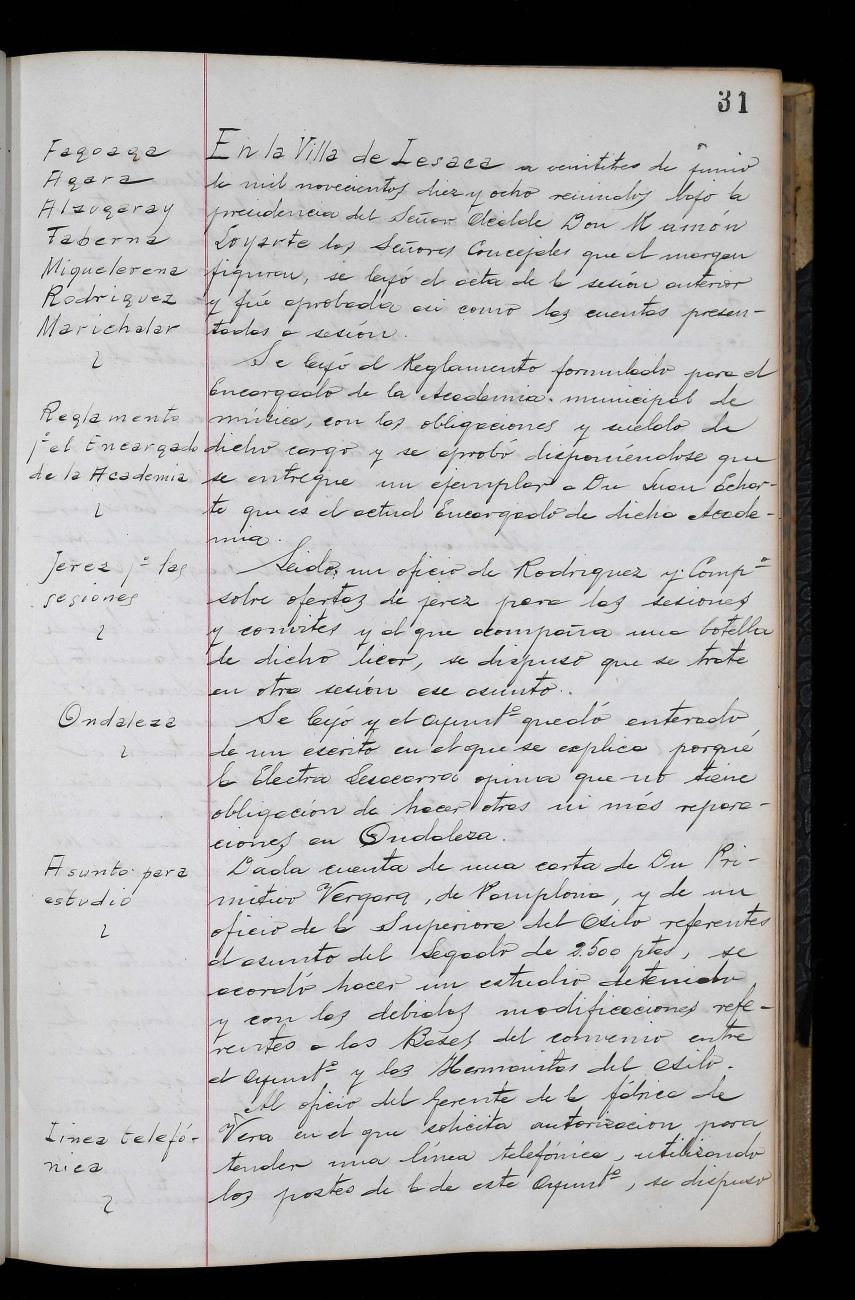 31
Fagoaga
Agara
Alzugaray
Taberna
Miguelerena
Rodriguez
Marichalar
En la Villa de Lesaca a veintitres de junio
de mil novecientos diez y ocho reunidos bajo la
presidencia del Señor Alcalde Don Ramón
Loyarte los Señores Concejales que al margen
figuran, se leyó el acta de la sesión anterior
y fué aprobada asi como las cuentas presen-
tadas a sesión.
Reglamento
pª el Encargado
de la Academia
Se leyó el Reglamento formulado para el
Encargado de la Academia municipal de
música, con las obligaciones y sueldo de
dicho cargo y se aprobó disponiéndose que
se entregue un ejemplar a Dn Juan Echar-
te que es el actual Encargado de dicha Acade-
mia.
Jerez pª las
sesiones
Leido un oficio de Rodriguez y Compª
sobre ofertas de jerez para las sesiones
y convites y al que acompaña una botella
de dicho licor, se dispuso que se trate
en otra sesión ese asunto.
Ondaleza
Se leyó y el Ayuntº quedó enterado
de un escrito en el que se explica porqué
la Electra Lesacarra opina que no tiene
obligación de hacer otras ni más repara-
ciones en Ondaleza.
Asunto para
estudio
Dada cuenta de una carta de Dn Pri-
mitivo Vergara, de Pamplona, y de un
oficio de la Superiora del Asilo referentes
al asunto del Legado de 2.500 ptas, se
acordó hacer un estudio detenido
y con las debidas modificaciones refe-
rentes a las Bases del convenio entre
el Ayuntº y las Hermanitas del Asilo.
Linea telefó-
nica
Al oficio del gerente de la fábrica de
Vera en el que solicita autorizacion para
tender una línea telefónica, utilizando
los postes de la de este Ayuntº, se dispuso